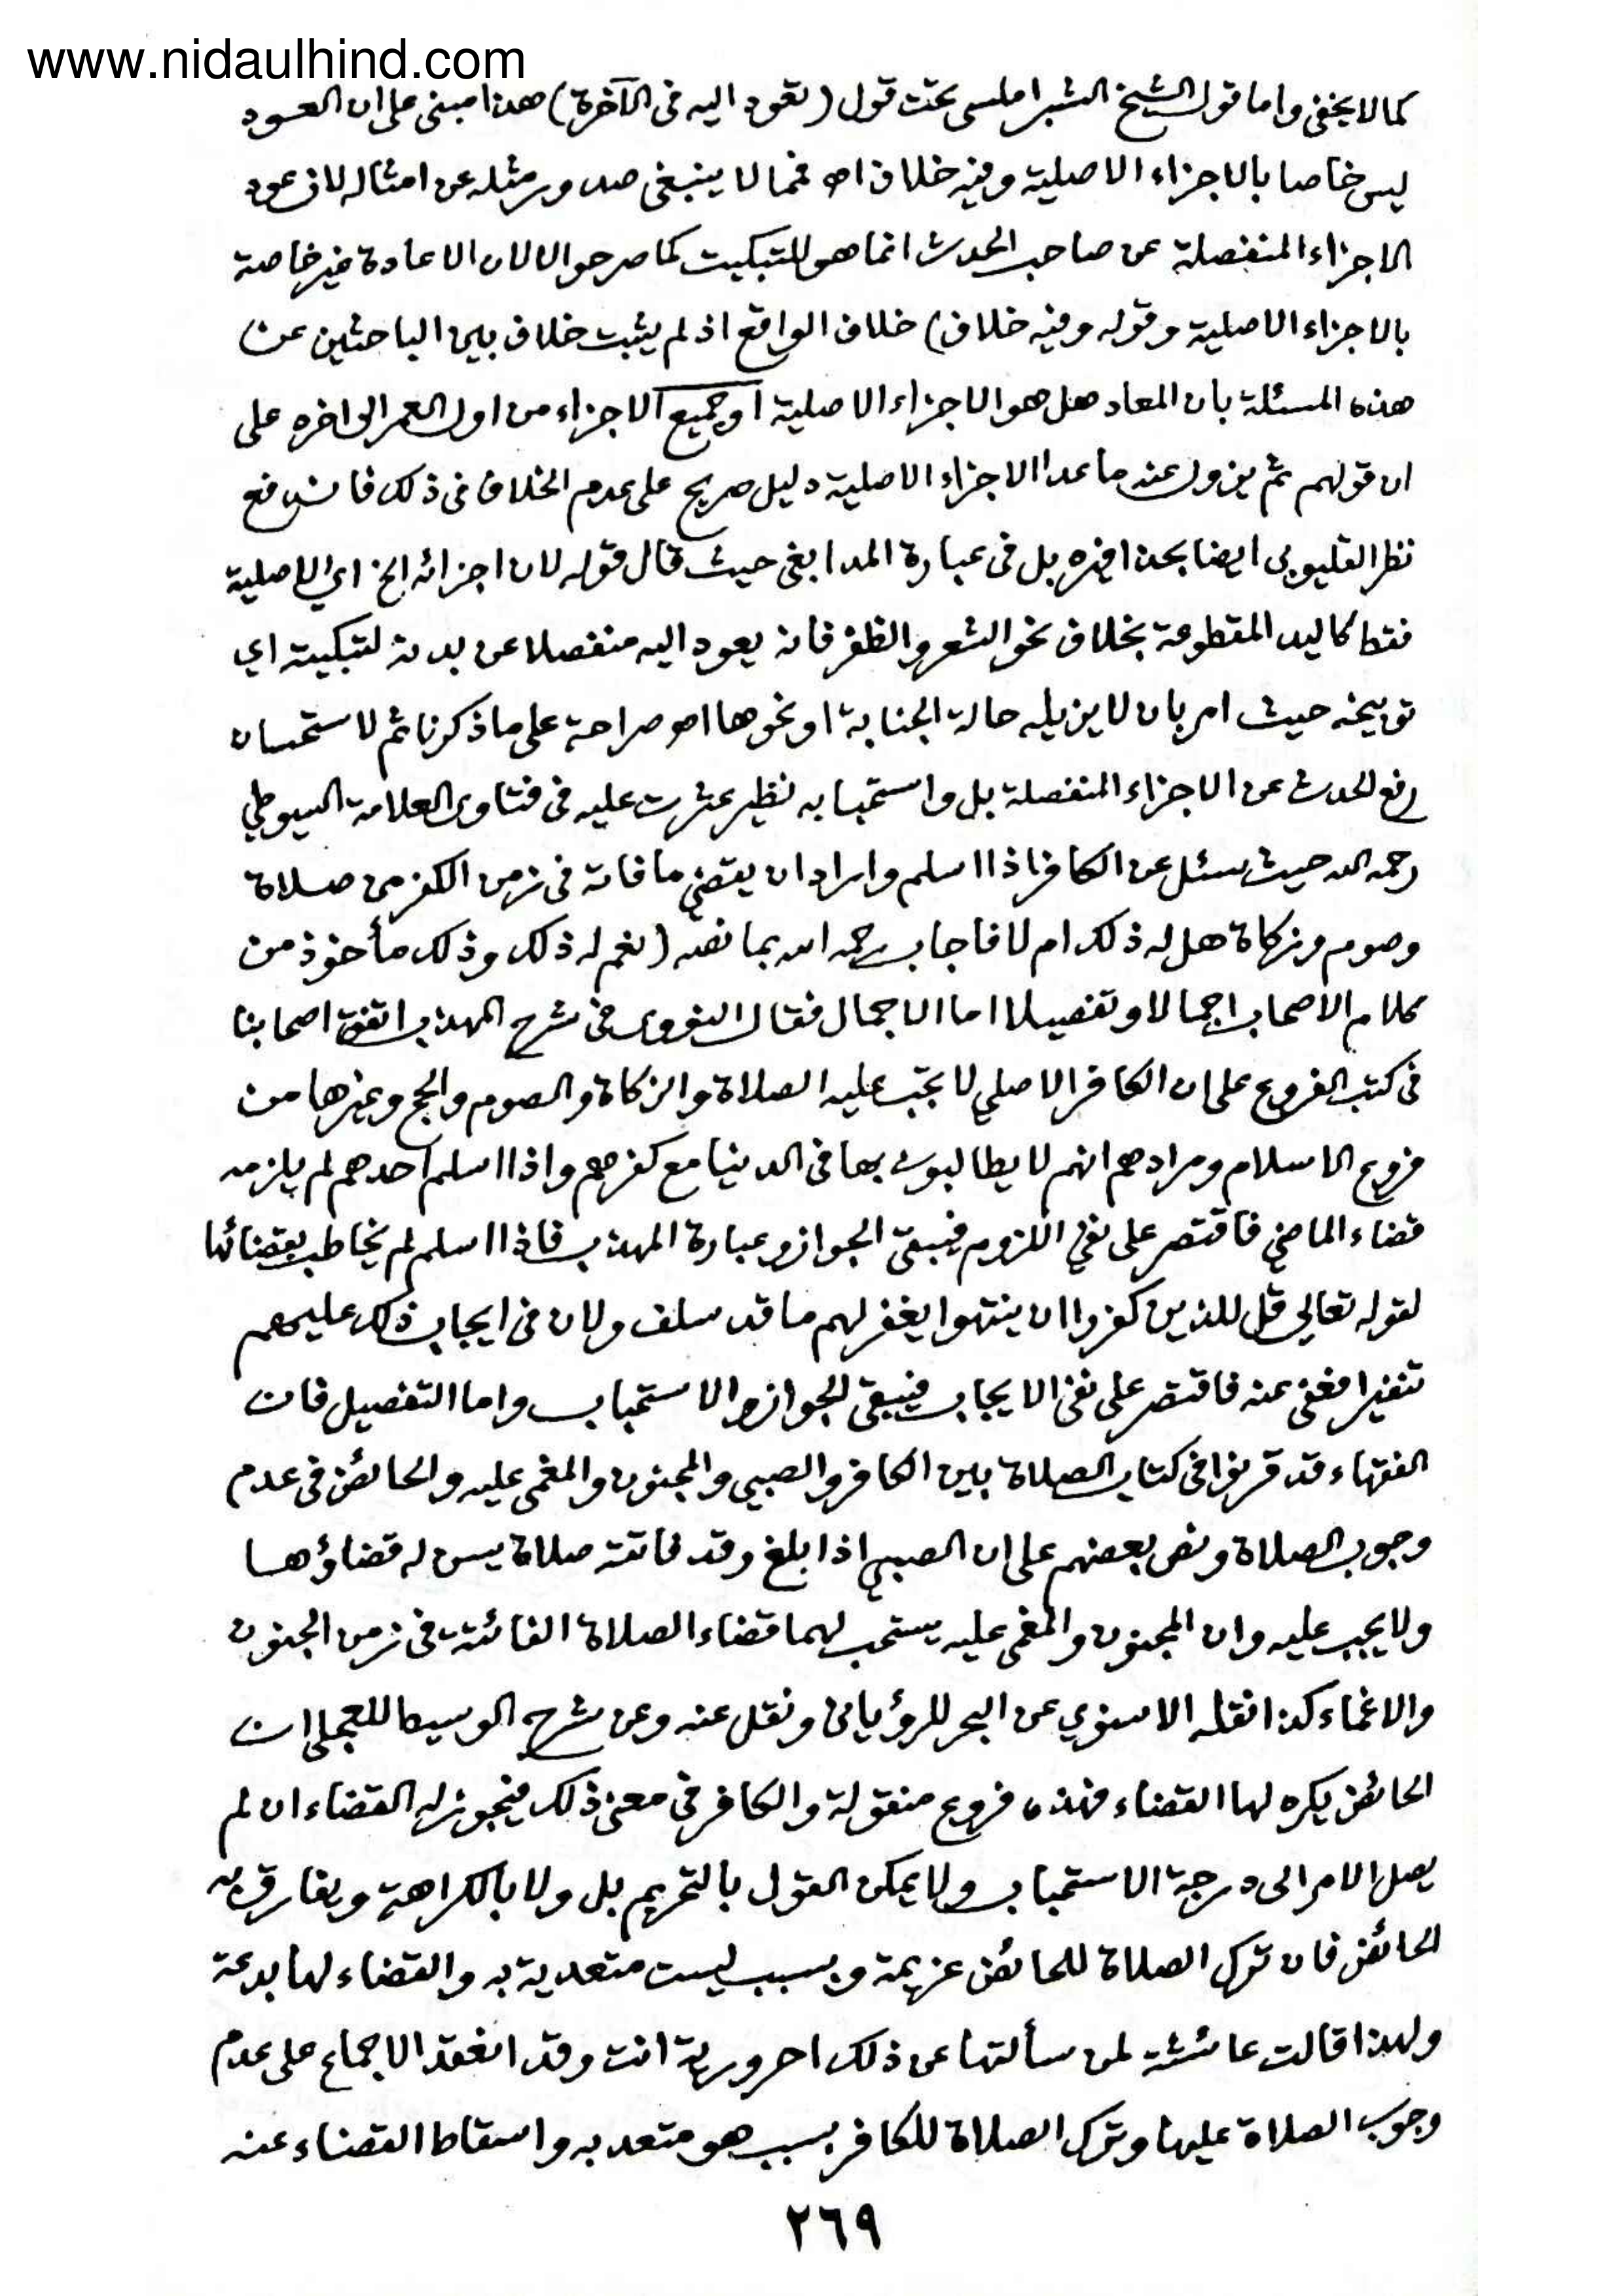 www.nidaulhind.com
كما لا يخفى واما قول الشيخ الشبراملسى تحت قول (تعود اليه فى الآخرة) هذا مبنى على ان العود
ليس خاصا بالاجزاء الاصلية وفيه خلاف اھ فمما لا ينبغى صدور مثله عن امثاله لان عود
الاجزاء المنفصلة عن صاحب الحدث انما هو للتبكيت كما صرحوا لا لان الاعادة غير خاصة
بالاجزاء الاصلية وقوله وفيه خلاف) خلاف الواقع اذ لم يثبت خلاف بين الباحثين عن
هذه المسئلة بان المعاد هل هو الاجزاء الاصلية او جميع الاجزاء من اول العمر الى اخره على
ان قولهم ثم يزول عنه ما عدا الاجزاء الاصلية دليل صريح على عدم الخلاف فى ذلك فاندفع
نظر القليوبى ايضا بحذافيره بل فى عبارة المدابغى حيث قال قوله لان اجزائه الخ اي الاصلية
فقط كاليد المقطوعة بخلاف نحو الشعر والظفر فانه يعود اليه منفصلا عن بدنه لتبكيته اي
توبيخه حيث امر بان لا يزيله حالة الجنابة او نحوها اھ صراحة على ما ذكرنا ثم لاستحسان
رفع الحدث عن الاجزاء المنفصلة بل واستحبابه نظير عثرت عليه فى فتاوى العلامة السيوطي
رحمه الله حيث سئل عن الكافر اذا اسلم واراد ان يقضي ما فاته فى زمن الكفر من صلاة
وصوم وزكاة هل له ذلك ام لا فاجاب رحمه الله بما نصه (نعم له ذلك وذلك مأخوذ من
كلام الاصحاب اجمالا وتفصيلا اما الاجمال فقال النووى فى شرح المهذب اتفق اصحابنا
فى كتب الفروع على ان الكافر الاصلي لا تجب عليه الصلاة والزكاة والصوم والحج وغيرها من
فروع الاسلام ومرادهم انهم لا يطالبون بها فى الدنيا مع كفرهم واذا اسلم احدهم لم يلزمه
قضاء الماضي فاقتصر على نفي اللزوم فيبقى الجواز وعبارة المهذب فاذا اسلم لم يخاطب بقضائها
لقوله تعالى قل للذين كفروا ان ينتهوا يغفر لهم ما قد سلف ولان فى ايجاب ذلك عليهم
تنفيرا فعفى عنه فاقتصر على نفى الايجاب فيبقى الجواز والاستحباب واما التفصيل فان
الفقهاء قد قرنوا فى كتاب الصلاة بين الكافر والصبي والمجنون والمغمى عليه والحائض فى عدم
وجوب الصلاة ونص بعضهم على ان الصبي اذا بلغ وقد فاتته صلاة يسن له قضاؤها
ولا يجب عليه وان المجنون والمغمى عليه يستحب لهما قضاء الصلاة الفائتة فى زمن الجنون
والاغماء كذا نقله الاسنوي عن البحر للرؤيانى ونقل عنه وعن شرح الوسيط للعجلى ان
الحائض يكره لها القضاء فهذه فروع منقولة والكافر في معنى ذلك فيجوز له القضاء ان لم
يصل الامر الى درجة الاستحباب ولا يمكن القول بالتحريم بل ولا بالكراهة ويفارق
الحائض فان ترك الصلاة للحائض عزيمة وبسبب ليست متعدية به والقضاء لها بدعة
ولهذا قالت عائشة لمن سألتها عن ذلك احرورية انت وقد انعقد الاجماع على عدم
وجوب الصلاة عليها وترك الصلاة للكافر بسبب هو متعد به واسقاط القضاء عنه
٢٦٩